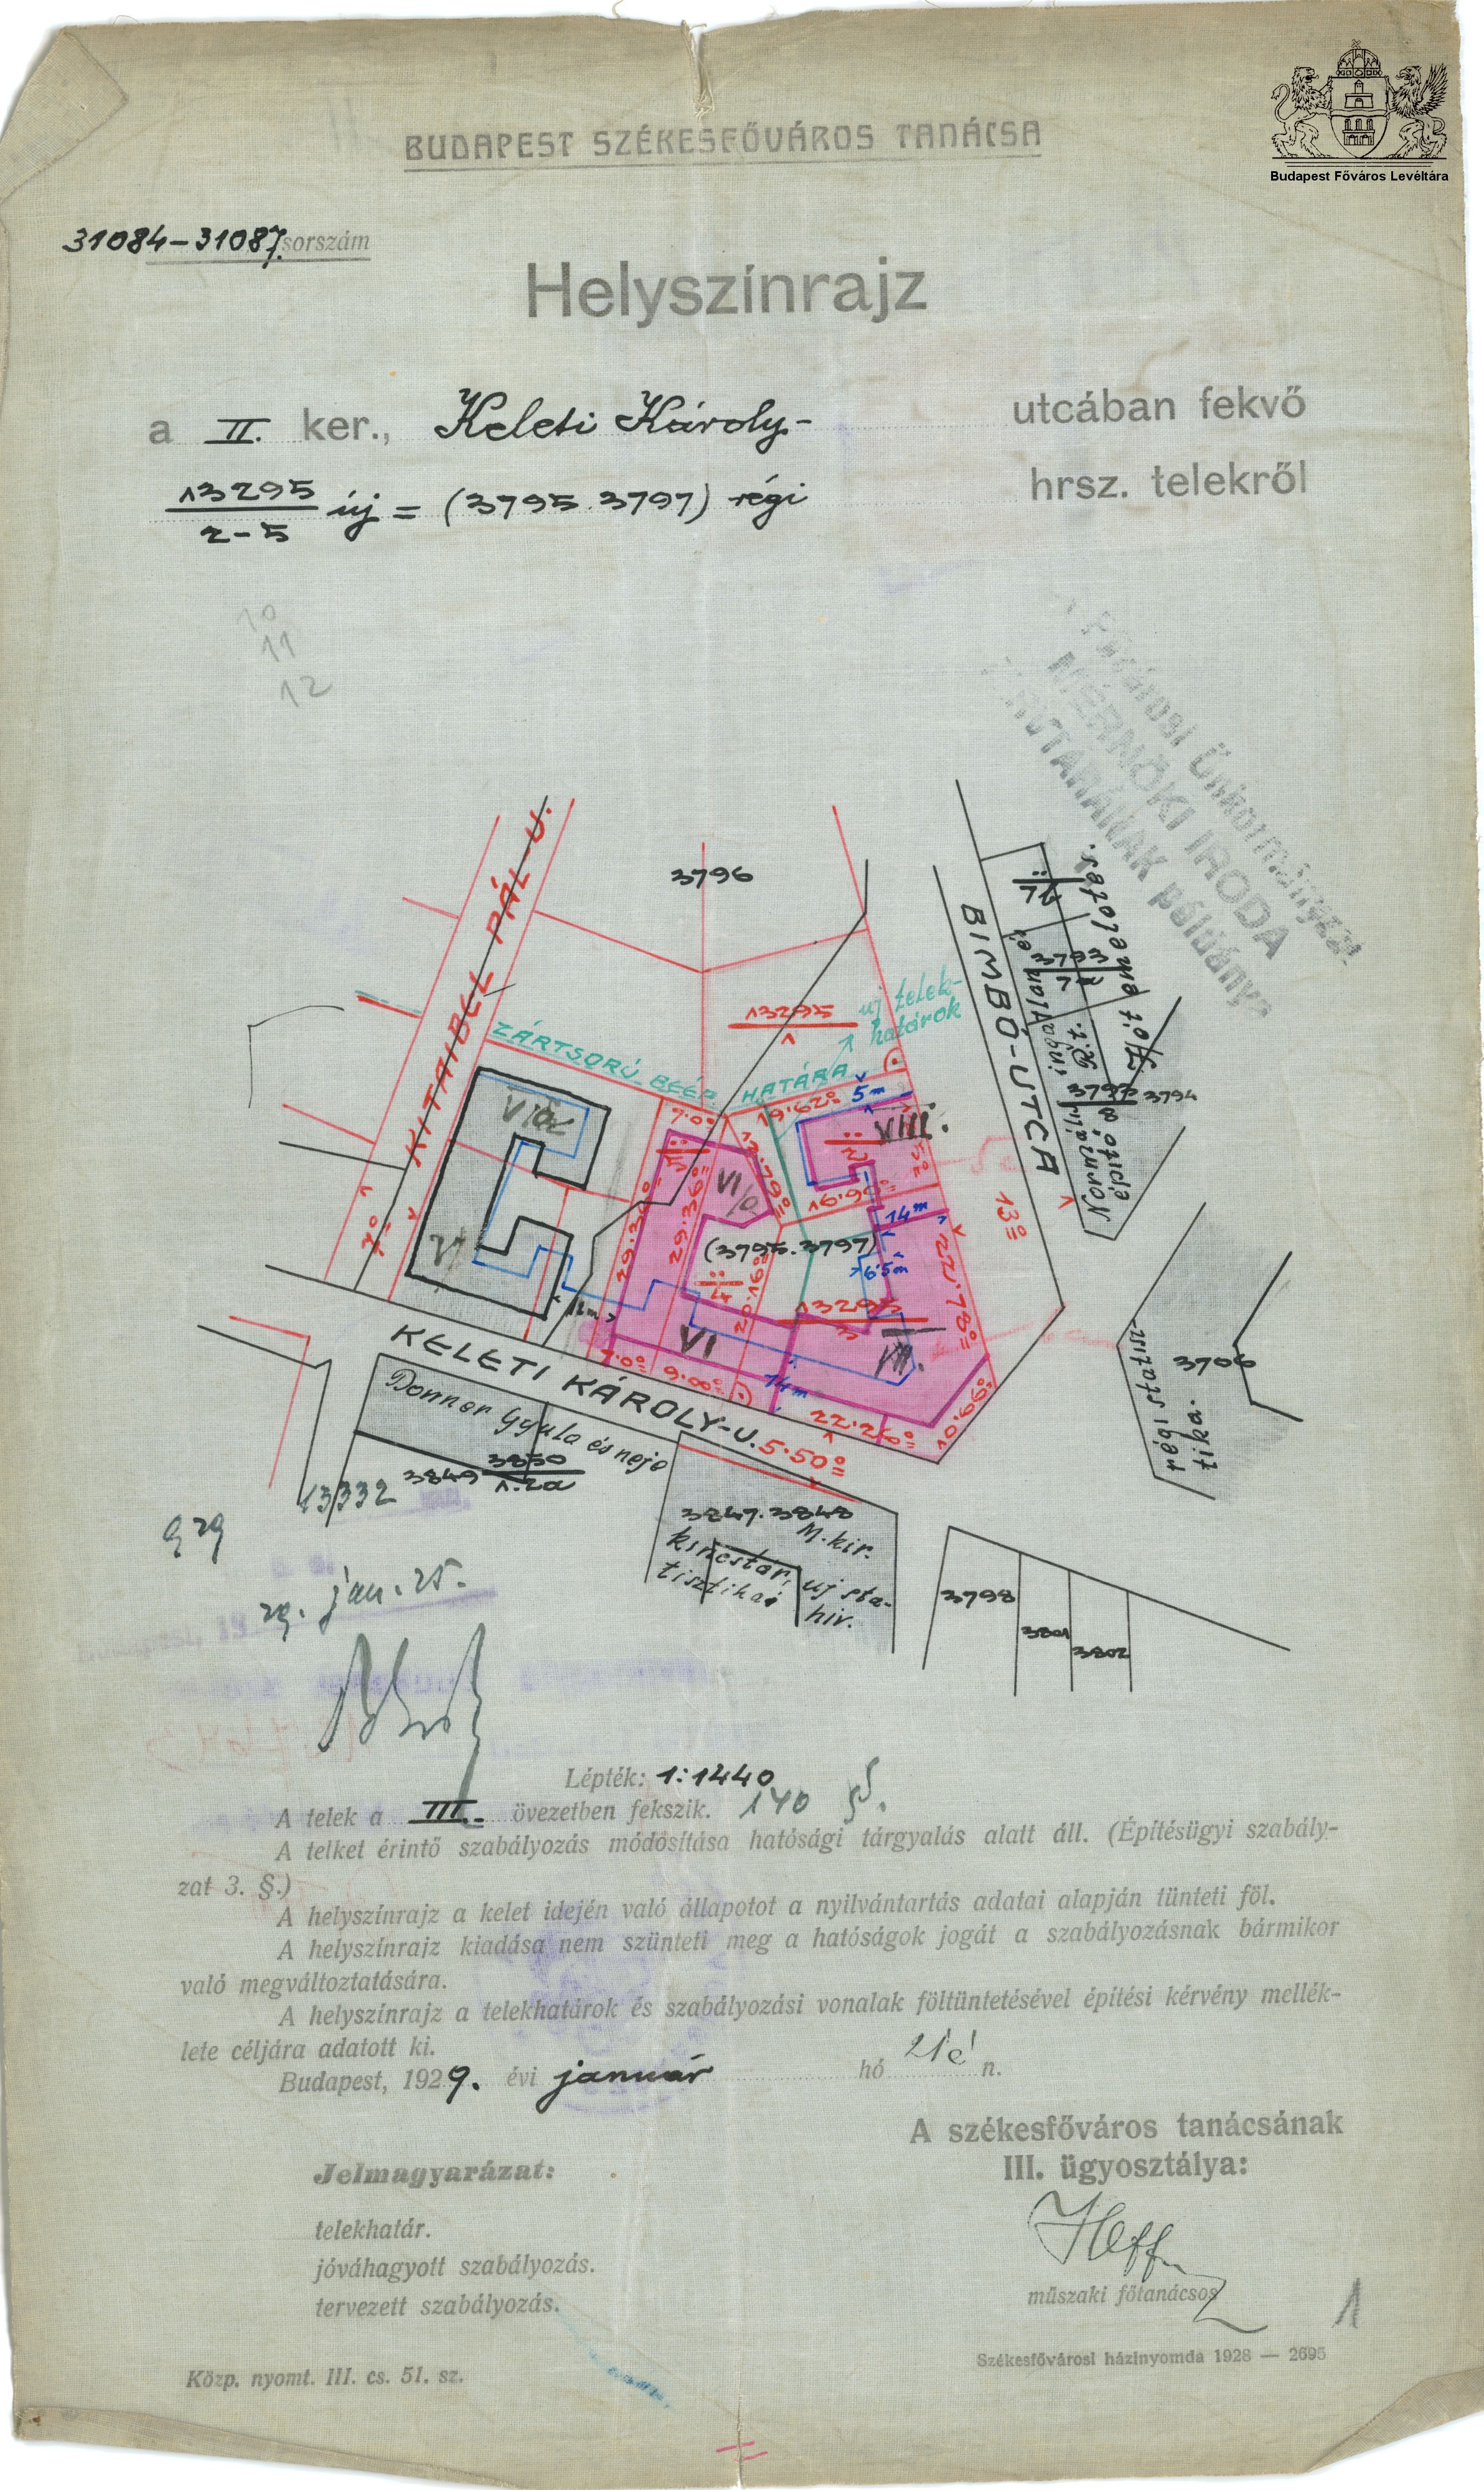 Budapest Főváros Levéltára
BUDAPEST SZÉKESFŐVÁROS TANÁCSA
31084-31087. sorszám
Helyszínrajz
a II. ker., Keleti Károly- utcában fekvő
13295
2-5 új = (3795.3797) régi hrsz. telekről
10
11
12
A Fővárosi Önkormányzat
MÉRNÖKI IRODA
TERVTÁRÁNAK példánya
KITAIBEL PÁL-U.
3796
13295
1
új telek-
határok
BIMBÓ-UTCA
ZÁRTSORÚ BEÉP. HATÁRA
5m
7·0°
19·62°
VIII.
VI/a
VI
3793
3794
29·36°
13·79°
16·90°
14m
(3795.3797)
6·5m
20·16°
13295
3
22·78°
13°
VI
VII.
12m
7·0°
9·00°
14m
22·26°
10·99°
5·50°
KELETI KÁROLY-U.
Donner Gyula és neje
3850
3849
1.2a
13332
3847.3848
M. kir.
kincstár,
új sta-
tisztikai
hiv.
3706
régi statisz-
tika.
3798
3801
3802
929
29. jan. 25.
Lépték: 1:1440
A telek a III. övezetben fekszik. 140
A telket érintő szabályozás módosítása hatósági tárgyalás alatt áll. (Építésügyi szabály-
zat 3. §.)
A helyszínrajz a kelet idején való állapotot a nyilvántartás adatai alapján tünteti föl.
A helyszínrajz kiadása nem szünteti meg a hatóságok jogát a szabályozásnak bármikor
való megváltoztatására.
A helyszínrajz a telekhatárok és szabályozási vonalak föltüntetésével építési kérvény mellék-
lete céljára adatott ki.
Budapest, 1929. évi január hó 21é n.
A székesfőváros tanácsának
III. ügyosztálya:
Jelmagyarázat:
telekhatár.
jóváhagyott szabályozás.
tervezett szabályozás.
műszaki főtanácsos
1
Székesfővárosi házinyomda 1928 — 2695
Közp. nyomt. III. cs. 51. sz.